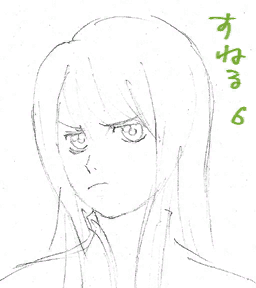 すねる 6